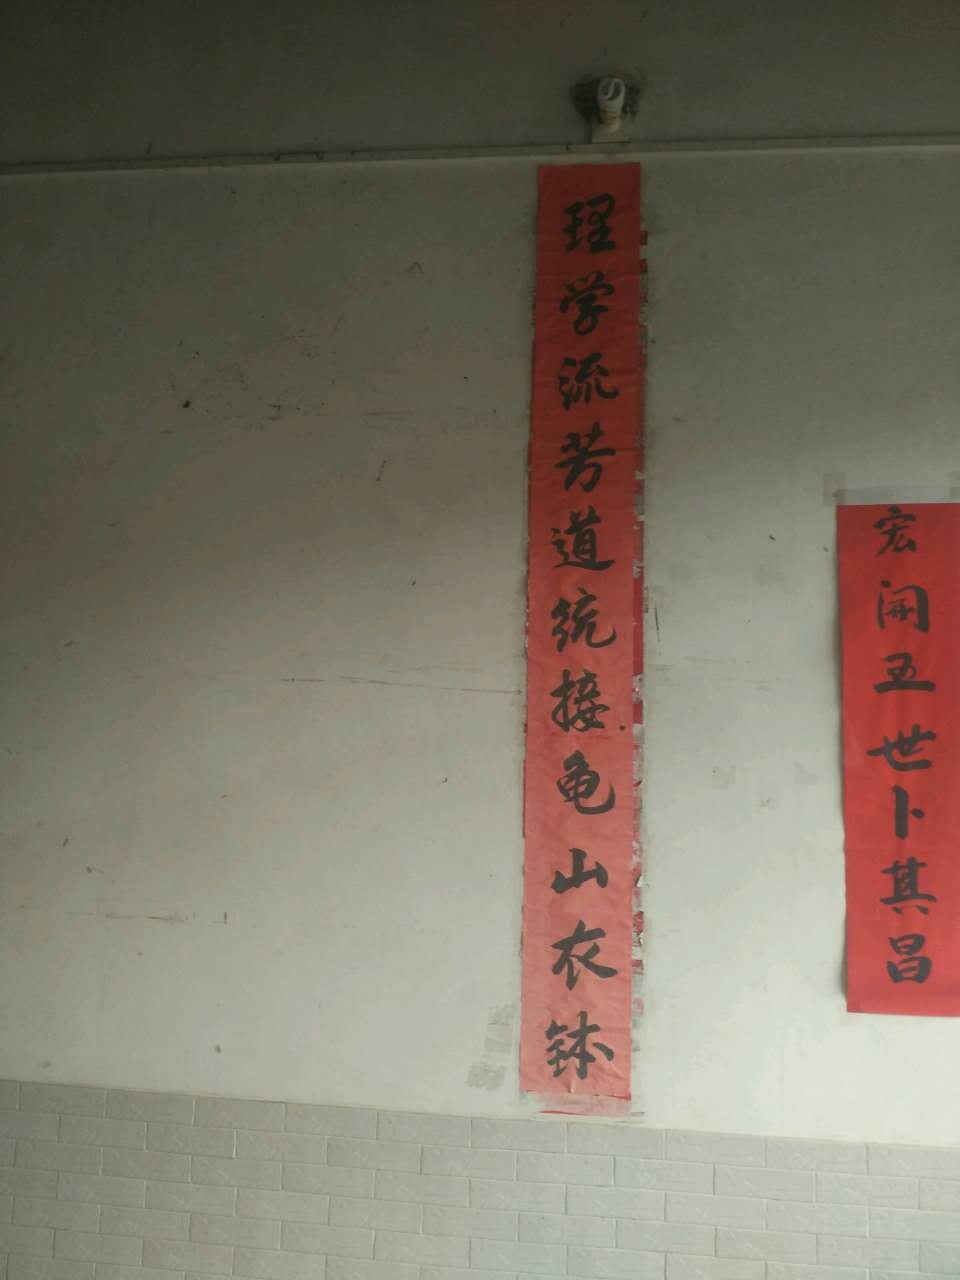 理学流芳道统接龟山衣钵
宏開五世卜其昌